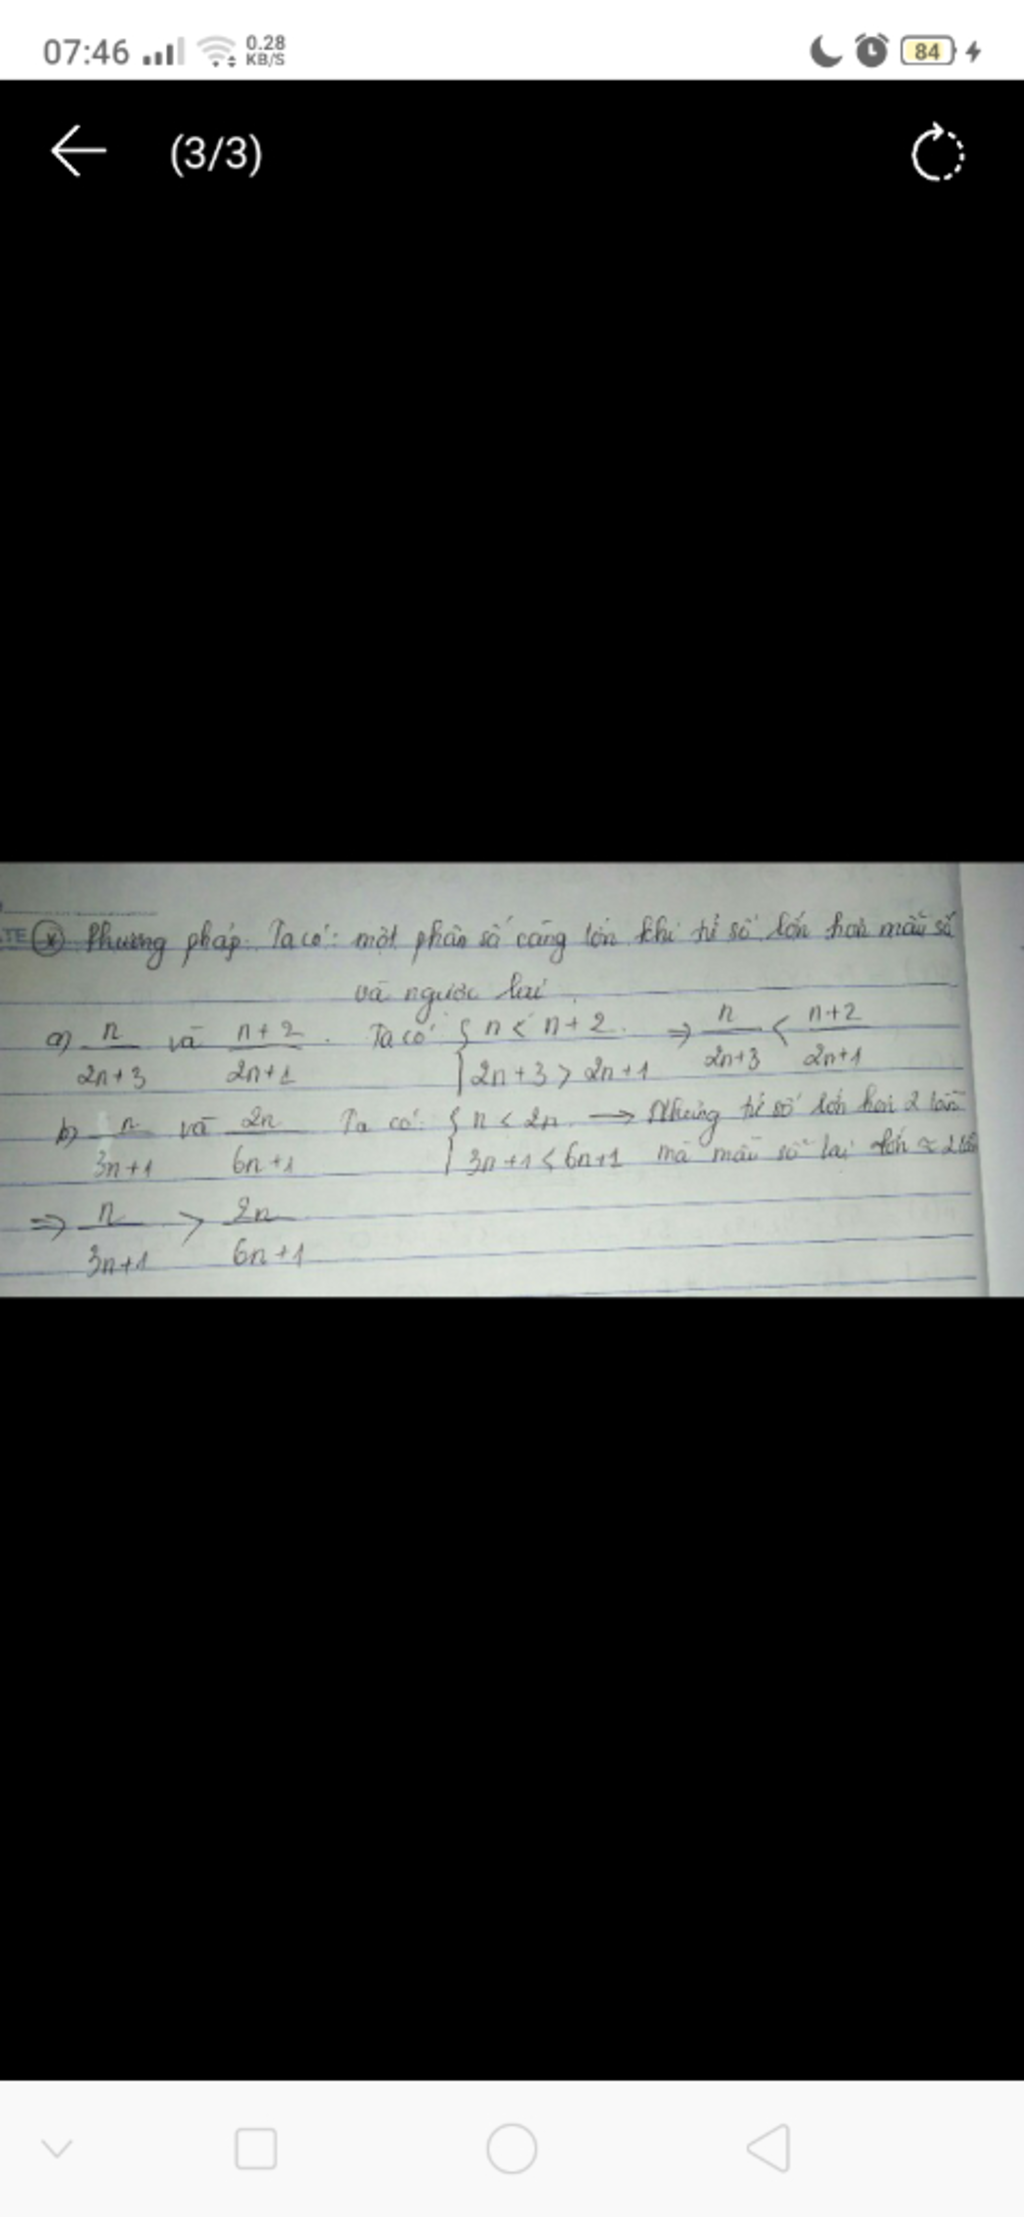 07:46 0.28 KB/S 84
(3/3)
TE (*) Phương pháp. Ta có: một phân số càng lớn khi tử số lớn hơn mẫu số
và ngược lại
a) n/2n+3 và n+2/2n+1. Ta có: { n < n+2. ⇒ n/2n+3 < n+2/2n+1
{ 2n+3 > 2n+1
b) n/3n+1 và 2n/6n+1 Ta có: { n < 2n → Nhưng tử số lớn hơn 2 lần
{ 3n+1 < 6n+1 mà mẫu số lại lớn ≈ 2 lần
⇒ n/3n+1 > 2n/6n+1